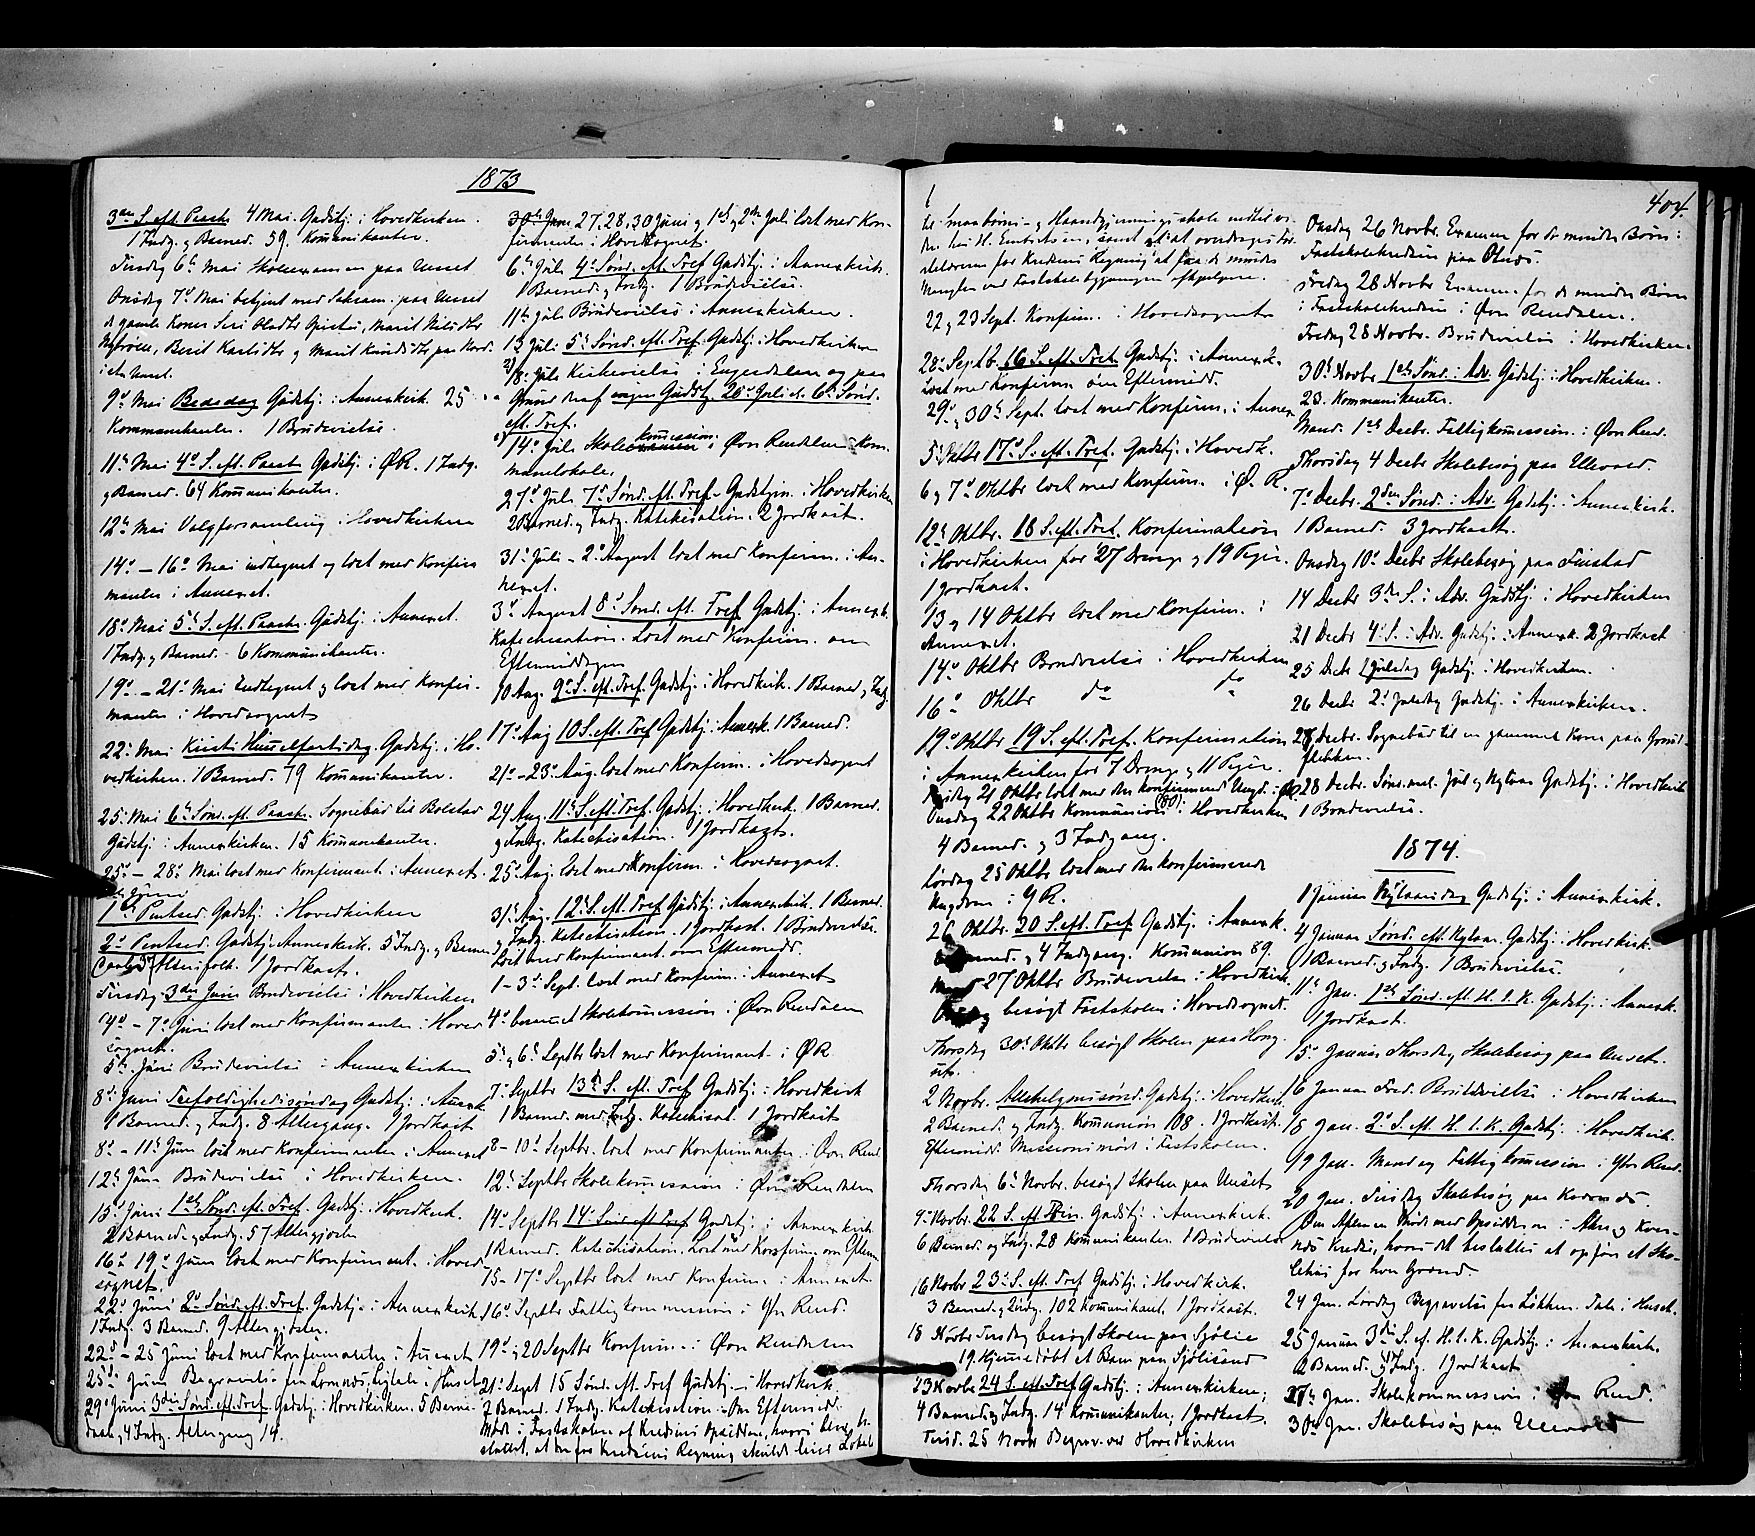 1873
3die S. eft. Paask 4 Mai. Gudstj. i Hovedkirken.
1 Indg. og Barned. 59. Kommunikanter.
Tirsdag 6te Mai Skoleexamen paa Unset
Onsdag 7de Mai betjent med Sakram. paa Unset
de gamle Koner Siri Marit
Berit og Marit paa Nord-
i Unset.
9de Mai Bededag Gudstj. i Annexkirk. 25
Kommunikanter. 1 Brudevielse.
11te Mai 4de S. eft. Paask Gudstj. i ØR. 1 Indg.
og Barned. 64 Kommunikanter.
12te Mai Valgforsamling i Hovedkirken
14de – 16de Mai indtegnet og læst med Konfir-
manter i Annexet.
18de Mai 5te S. eft. Paask. Gudstj. i Annexet.
1 Indg. og Barned. 6 Kommunikanter.
19de – 21de Mai Indtegnet og læst med Konfir-
manter i Hovedsognet
22de Mai Kristi Himmelfartsdag. Gudstj. i Ho-
vedkirken. 1 Barned. 79 Kommunikanter.
25de Mai 6te Sønd. eft. Paask. Sognebud til
Gudstj. i Annexkirken. 15 Kommunikanter.
25de – 28de Mai læst med Konfirmant. i Annexet.
1ste Pintsed. Gudstj. i Hovedkirken
2den Pintsed. Gudstj. Annexkirk. 5 Indg. og Barne-
daab 37 Altersfolk. 1 Jordkast.
Tirsdag 3die Juni Brudevielse i Hovedkirken
4de – 7de Juni læst med Konfirmanter i Hoved-
sognet.
5te Juni Brudevielse i Annexkirken
8de Juni Trefoldighedssøndag Gudstj. i Annexk.
1 Barned. og Indg. 8 Altergang. 1 Jordkast
8de – 11te Juni læst med Konfirmanter i Annexet
12te Juni Brudevielse i Hovedkirken.
15de Juni 1ste Sønd. eft. Tref. Gudstj. i Hovedkirk.
2 Barned. og Indg. 57 Altergjester
16de – 19de Juni læst med Konfirmant. i Hoved-
sognet.
22de Juni 2den Sønd. eft. Tref. Gudstj. i Annexkirk.
1 Indg. 3 Barned. 9 Altergjester.
22de – 25 Juni læst med Konfirmanter i Annexet
25de Juni Begravelse fra i Huset
29de Juni 3die Sønd. eft. Tref. Gudstj. i Hovedkirken. 5 Barne-
daab og 4 Indg. Altergang 14.
27, 28, 30 Juni og 1ste og 2den Juli læst med Kon-
firmanter i Hovedsognet.
6te Juli 4de Sønd. eft. Tref. Gudstj. i Annexkirk.
1 Barned. og Indg. 1 Brudevielse.
11te Juli Brudevielse i Annexkirken.
13 Juli 5te Sønd. eft. Tref. Gudstj. i Hovedkirken
18de Juli Kirkevielse i Engerdalen og paa
Grund deraf ingen Gudstj. 20de Juli d. 6te Sønd.
eft. Tref.
14de Juli Skolekommission i Øvre Rendalens Kom-
munelokale.
27de Juli 7de Sønd. eft. Tref. Gudstjen. i Hovedkirken
2 Barned. og Indg. Katekisation. 2 Jordkast.
31te Juli – 2den August læst med Konfirm. i An-
nexet.
3die August 8de Sønd. eft. Tref. Gudstj. i Annexk.
Katechisation. Læst med Konfirm. om
Eftermiddagen
10 Aug. 9de S. eft. Tref. Gudstj. i Hovedkirk. 1 Barned. og Indg.
17de Aug 10 S. eft. Tref. Gudstj. Annexk. 1 Barned.
21de – 23de Aug. læst med Konfirm. i Hovedsognet
24 Aug. 11te S. eft. Tref. Gudstj. i Hovedkirk. 1 Barned.
og Indg. Katechisation. 1 Jordkast.
25de Aug. læst med Konfirm. i Hovedsognet.
31te Aug. 12te S. eft. Tref. Gudstj. i Annexkirk. 1 Barned.
og Indg. Katechisation. 1 Jordkast. 1 Brudevielse.
Læst med Konfirmant. om Eftermidd.
1 – 3die Sept. læst med Konfirm. i Annexet
4de Skolekommission i Øvre Rendalen
5te og 6te Septbr læst med Konfirmant. i ØR.
7de Septbr 13de S. eft. Tref Gudstj. i Hovedkirk
1 Barned. med Indg. Katechisat. 1 Jordkast
8 – 10de Septbr. læst med Konfirmanter i Øvre Rend.
12te Septbr Skolekommission i Øvre Rendalen
14de Septbr 14de Sønd. eft. Tref Gudstj. i Annexkirk
1 Barned. Katechisation. Læst med Konfirm. om Efterm.
15 – 17de Septbr læst med Konfirm. i Annexet
16de Septbr Fattigkommission i Ytre Rend.
19de og 20 Septbr Konfirm. i Øvre Rendalen
21de Sept 15 Sønd. eft. Tref Gudstj. i Hovedkirk.
2 Barned. 1 Indg. Katekisation. Om Eftermidd.
Møde i Fastskolen af Kredsens Opsidden, hvori blev be-
sluttet, at der for Kredsens Regning skulde leies Lokale
404.
til Smaabørns- og Haandgjerningsskole
samt at overdrage
for Kredsens Regning at faa de mindre
Mangler ved Fastskolebygningen afhjulpne.
22 og 23 Sept. Konfirm. i Hovedsognet
28de Septb. 16 S. eft. Tref. Gudstj. i Annexk.
Læst med Konfirm. om Eftermidd.
29de og 30te Sept. læst med Konfirm. i Annex
5te Oktbr 17de S. eft. Tref. Gudstj. i Hovedk.
6 og 7de Oktbr læst med Konfirm. i Ø. R.
12te Oktbr. 18 S. eft. Tref. Konfirmation
i Hovedkirken for 27 Drenge og 19 Piger.
1 Jordkast.
13 og 14 Oktbr læst med Konfirm. i
Annexet.
14de Oktbr Brudevielse i Hovedkirken
16de Oktbr do do
19de Oktbr 19 S. eft. Tref. Konfirmation
i Annexkirken for 7 Drenge og 11 Piger.
Tirsdag 21 Oktbr læst med den konfirmerede Ungd. i do.
Onsdag 22 Oktbr Kommunion (80) i Hovedkirken
4 Barned. og 3 Indgang.
Lørdag 25 Oktbr læst med den konfirmerede
Ungdom i YR.
26 Oktbr. 20 S. eft. Tref Gudstj. i Annexk.
Barned. og 4 Indgang. Kommunion 89.
Mand. 27 Oktbr Brudevielse i Hovedkirk.
Onsdag besøgt Fastskolen i Hovedsognet.
Thorsdag 30te Oktbr besøgt Skolen paa
2 Novbr. Allehelgensønd. Gudstj. i Hovedkirk.
2 Barned. og Indg. Kommunion 108. 1 Jordkast.
Eftermidd. Missionsmøde i Fastskolen.
Thorsdag 6te Novbr. besøgt Skolen paa Unset
9de Novbr. 22 S. eft. Trin. Gudstj. i Annexkirk.
6 Barned. og Indg. 28 Kommunikanter. 1 Brudevielse
16 Novbr 23de S. eft. Tref Gudstj. i Hovedkirk.
3 Barned. og Indg. 102 Kommunikant. 1 Jordkast.
18 Novbr Tirsdag besøgt Skolen paa Sjølie
19. Hjemmedøbt et Barn paa Sjølisand
23 Novbr 24 S. eft. Tref Gudstj. i Annexkirken;
4 Barned. og Indg. 14 Kommunikanter; 1 Jordkast
Tirsd. 25 Novbr Begrav. ved Hovedkirken
Onsdag 26 Novbr. Examen for de mindre Børn i
Fastskolekredsen paa
Fredag 28 Novbr Examen for de mindre Børn
i Fastskolekredsen i Øvre Rendalen.
Fredag 28 Novbr. Brudevielse i Hovedkirken.
30te Novbr 1ste Sønd. i Adv. Gudstj. i Hovedkirken.
23. Kommunikanter.
Mand. 1ste Decbr. Fattigkommission i Øvre Rend.
Thorsdag 4 Decbr Skolebesøg paa Ullevold.
7de Decbr. 2den Sønd. i Adv. Gudstj. i Annexkirk.
1 Barned. 3 Jordkast.
Onsdag 10de Decbr Skolebesøg paa Finstad
14 Decbr 3die S. i Adv. Gudstj. i Hovedkirken
21 Decbr 4de S. i Adv. Gudstj. i Annexk. 2 Jordkast
25 Decbr 1 Juledag Gudstj. i Hovedkirken.
26 Decbr 2den Juledag Gudstj. i Annexkirken.
28 Decbr. Sognebud til en gammel Kone paa Grind-
flekken.
28 Decbr. Sønd. mel. Jul og Nytaar Gudstj. i Hovedkirk
1 Brudevielse.
1874.
1 Januar Nytaarsdag Gudstj. i Annexkirk.
4 Januar Sønd. eft. Nytaar. Gudstj. i Hovedkirk.
1 Barned. og Indg. 1 Brudevielse.
11te Jan. 1ste Sønd. eft. H. 3. K. Gudstj. i Annexk.
1 Jordkast.
15de Januar Thorsdag Skolebesøg paa Unset.
16 Januar Fred. Brudevielse i Hovedkirken
18 Jan. 2den S. eft. H. 3. K. Gudstj. i Hovedkirk.
19 Jan. Mandag Fattigkommission i Ytre Rend.
20 Jan. Tirsdag Skolebesøg paa
Om Aftenen Møde med Opsidderne i
Kreds, hvori det besluttes at opføre et Sko-
lehus for hver Grænd.
24 Jan. Lørdag Begravelse fra Løkken. Tale i Huset.
25 Januar 3die S. ef. H. 3. K. Gudstj. i Annexkirk.
2 Barned. og Indg. 1 Jordkast.
27de Jan. Skolekommission i Øvre Rend.
30te Jan. Skolebesøg paa Ullevold